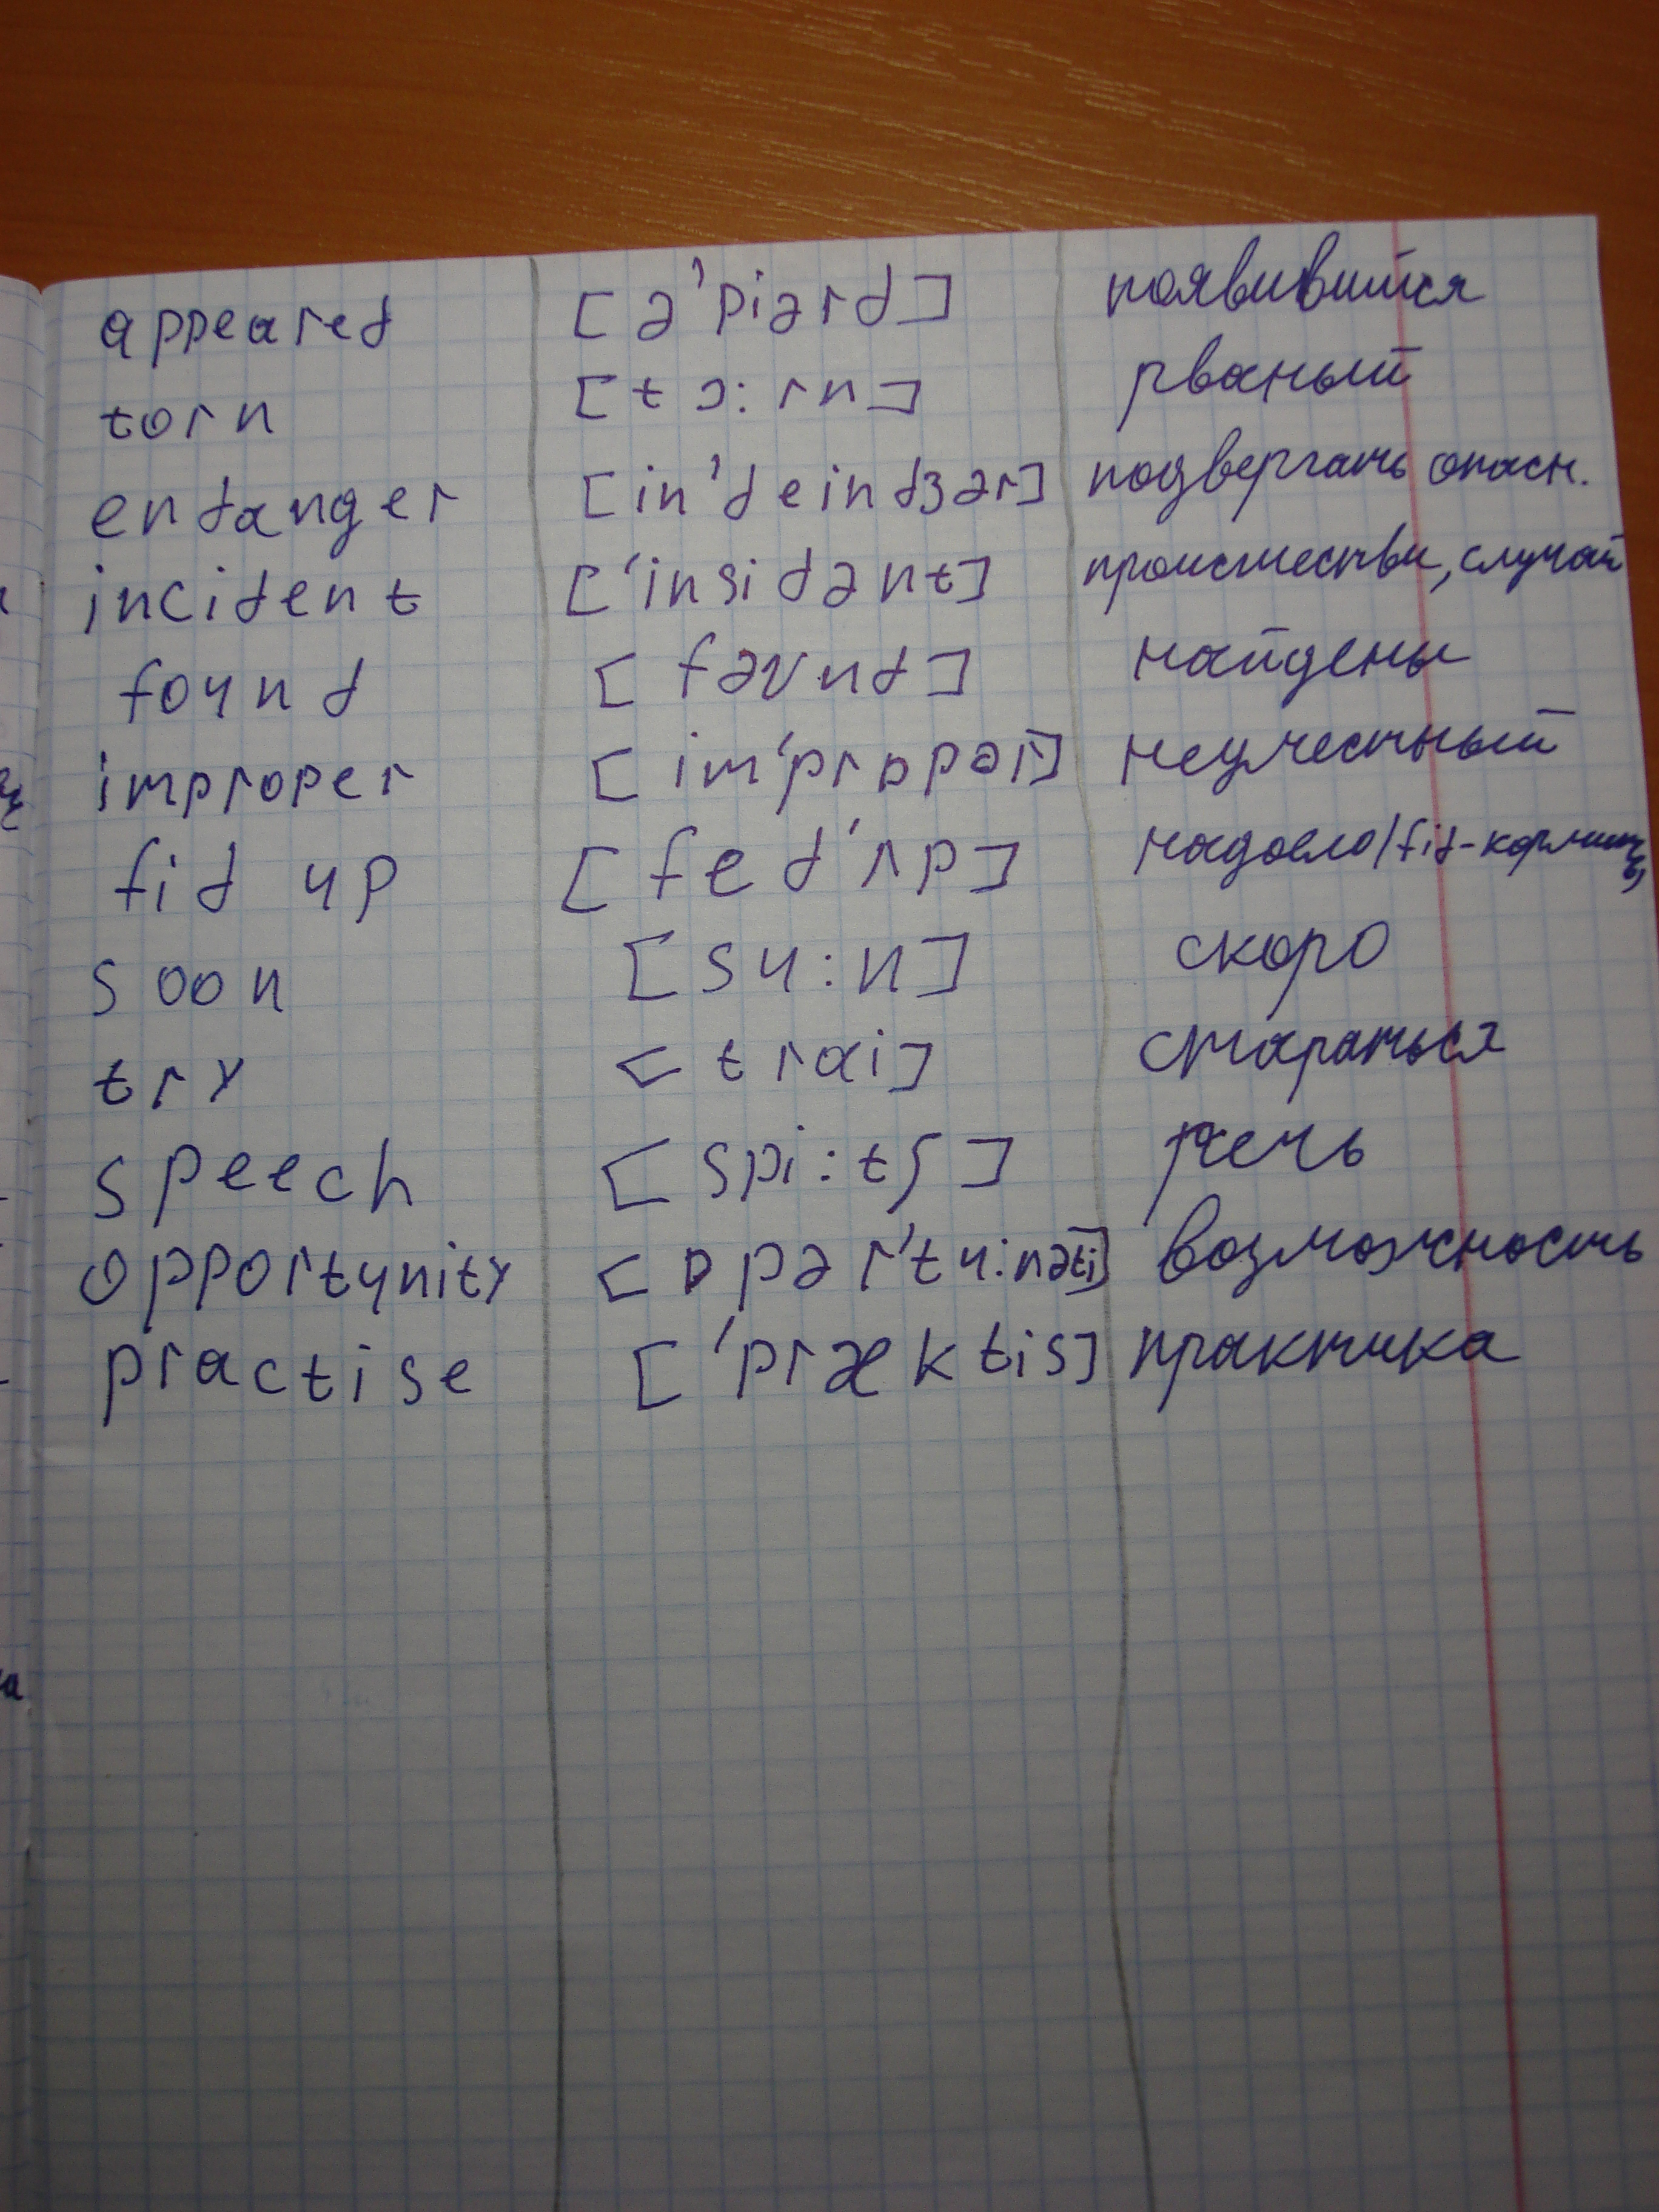 appeared [ə'piərd] появившийся
torn [tɔ:rn] рваный
endanger [in'deindʒər] подвергать опасн.
incident ['insidənt] происшестви, случай
found [faʊnd] найдены
improper [im'prɒpər] неуместный
fid up [fed'ʌp] надоело/fid-кормить
soon [su:n] скоро
try [trai] стараться
speech [spi:tʃ] речь
opportunity [ɒpər'tu:nəti] возможность
practise ['præktis] практика